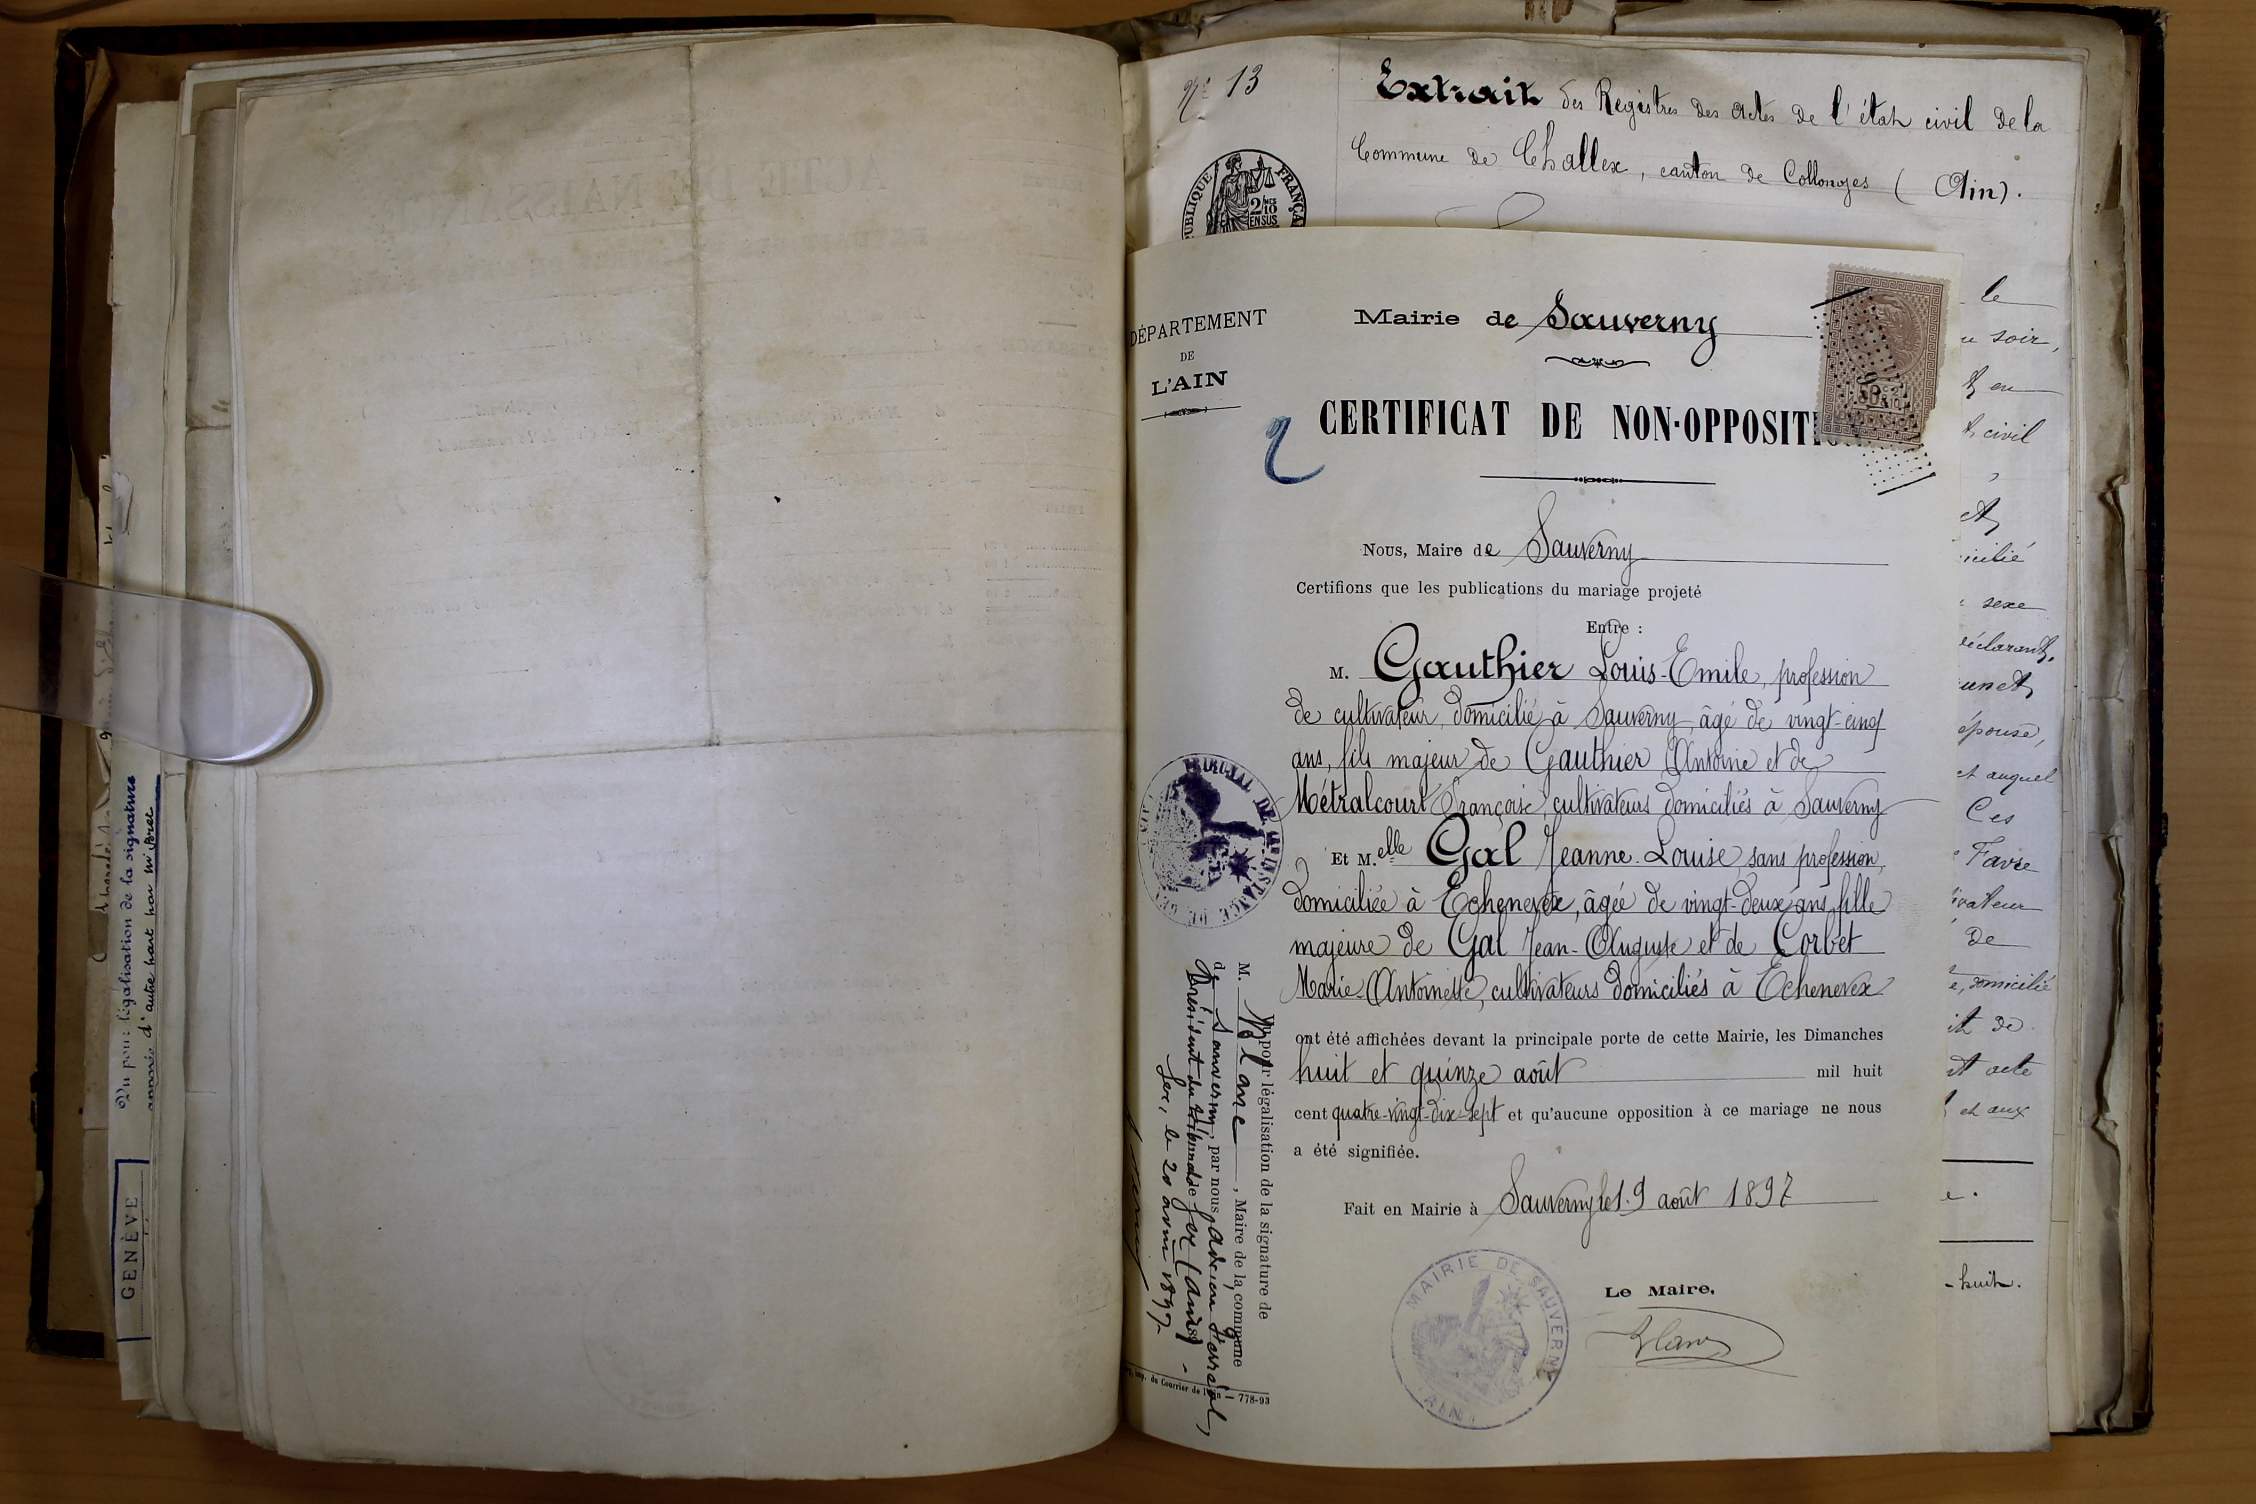 Nº 13
Extrait des Registres des actes de l'état civil de la
Commune de Challex, canton de Collonges (Ain).
RÉPUBLIQUE FRANÇA
2/10
EN SUS
DÉPARTEMENT
DE
L'AIN
Mairie de Sauverny
2
CERTIFICAT DE NON-OPPOSITI
Nous, Maire de Sauverny
Certifions que les publications du mariage projeté
Entre :
M. Gauthier Louis-Emile, profession
de cultivateur, domicilié à Sauverny, âgé de vingt-cinq
ans, fils majeur de Gauthier Antoine et de
Métralcourt Françoise, cultivateurs domiciliés à Sauverny
Et M.elle Gal Jeanne-Louise, sans profession,
domiciliée à Echenevex, âgée de vingt-deux ans, fille
majeure de Gal Jean-Auguste et de Corbet
Marie-Antoinette, cultivateurs domiciliés à Echenevex
ont été affichées devant la principale porte de cette Mairie, les Dimanches
huit et quinze août mil huit
cent quatre-vingt-dix-sept et qu'aucune opposition à ce mariage ne nous
a été signifiée.
Fait en Mairie à Sauverny le 19 août 1897
Le Maire,
Blanc
MAIRIE DE SAUVERNY
AIN
TRIBUNAL DE 1re INSTANCE DE GEX
Vu pour légalisation de la signature de
M. Blanc, Maire de la commune
de Sauverny, par nous, Adrien
Président du tribunal de Gex (Ain)
Gex, le 20 août 1897
du Courrier de l'Ain — 778-93
le
soir,
en
civil
et
icilié
sexe
déclarant,
un et
épouse,
et auquel
Ces
Favre
ivateur
de
e, domicilié
it de
nt acte
et aux
e.
-huit.
Vu pour légalisation de la signature
apposée d'autre part par Mr
GENÈVE
ACTE DE NAISSANCE